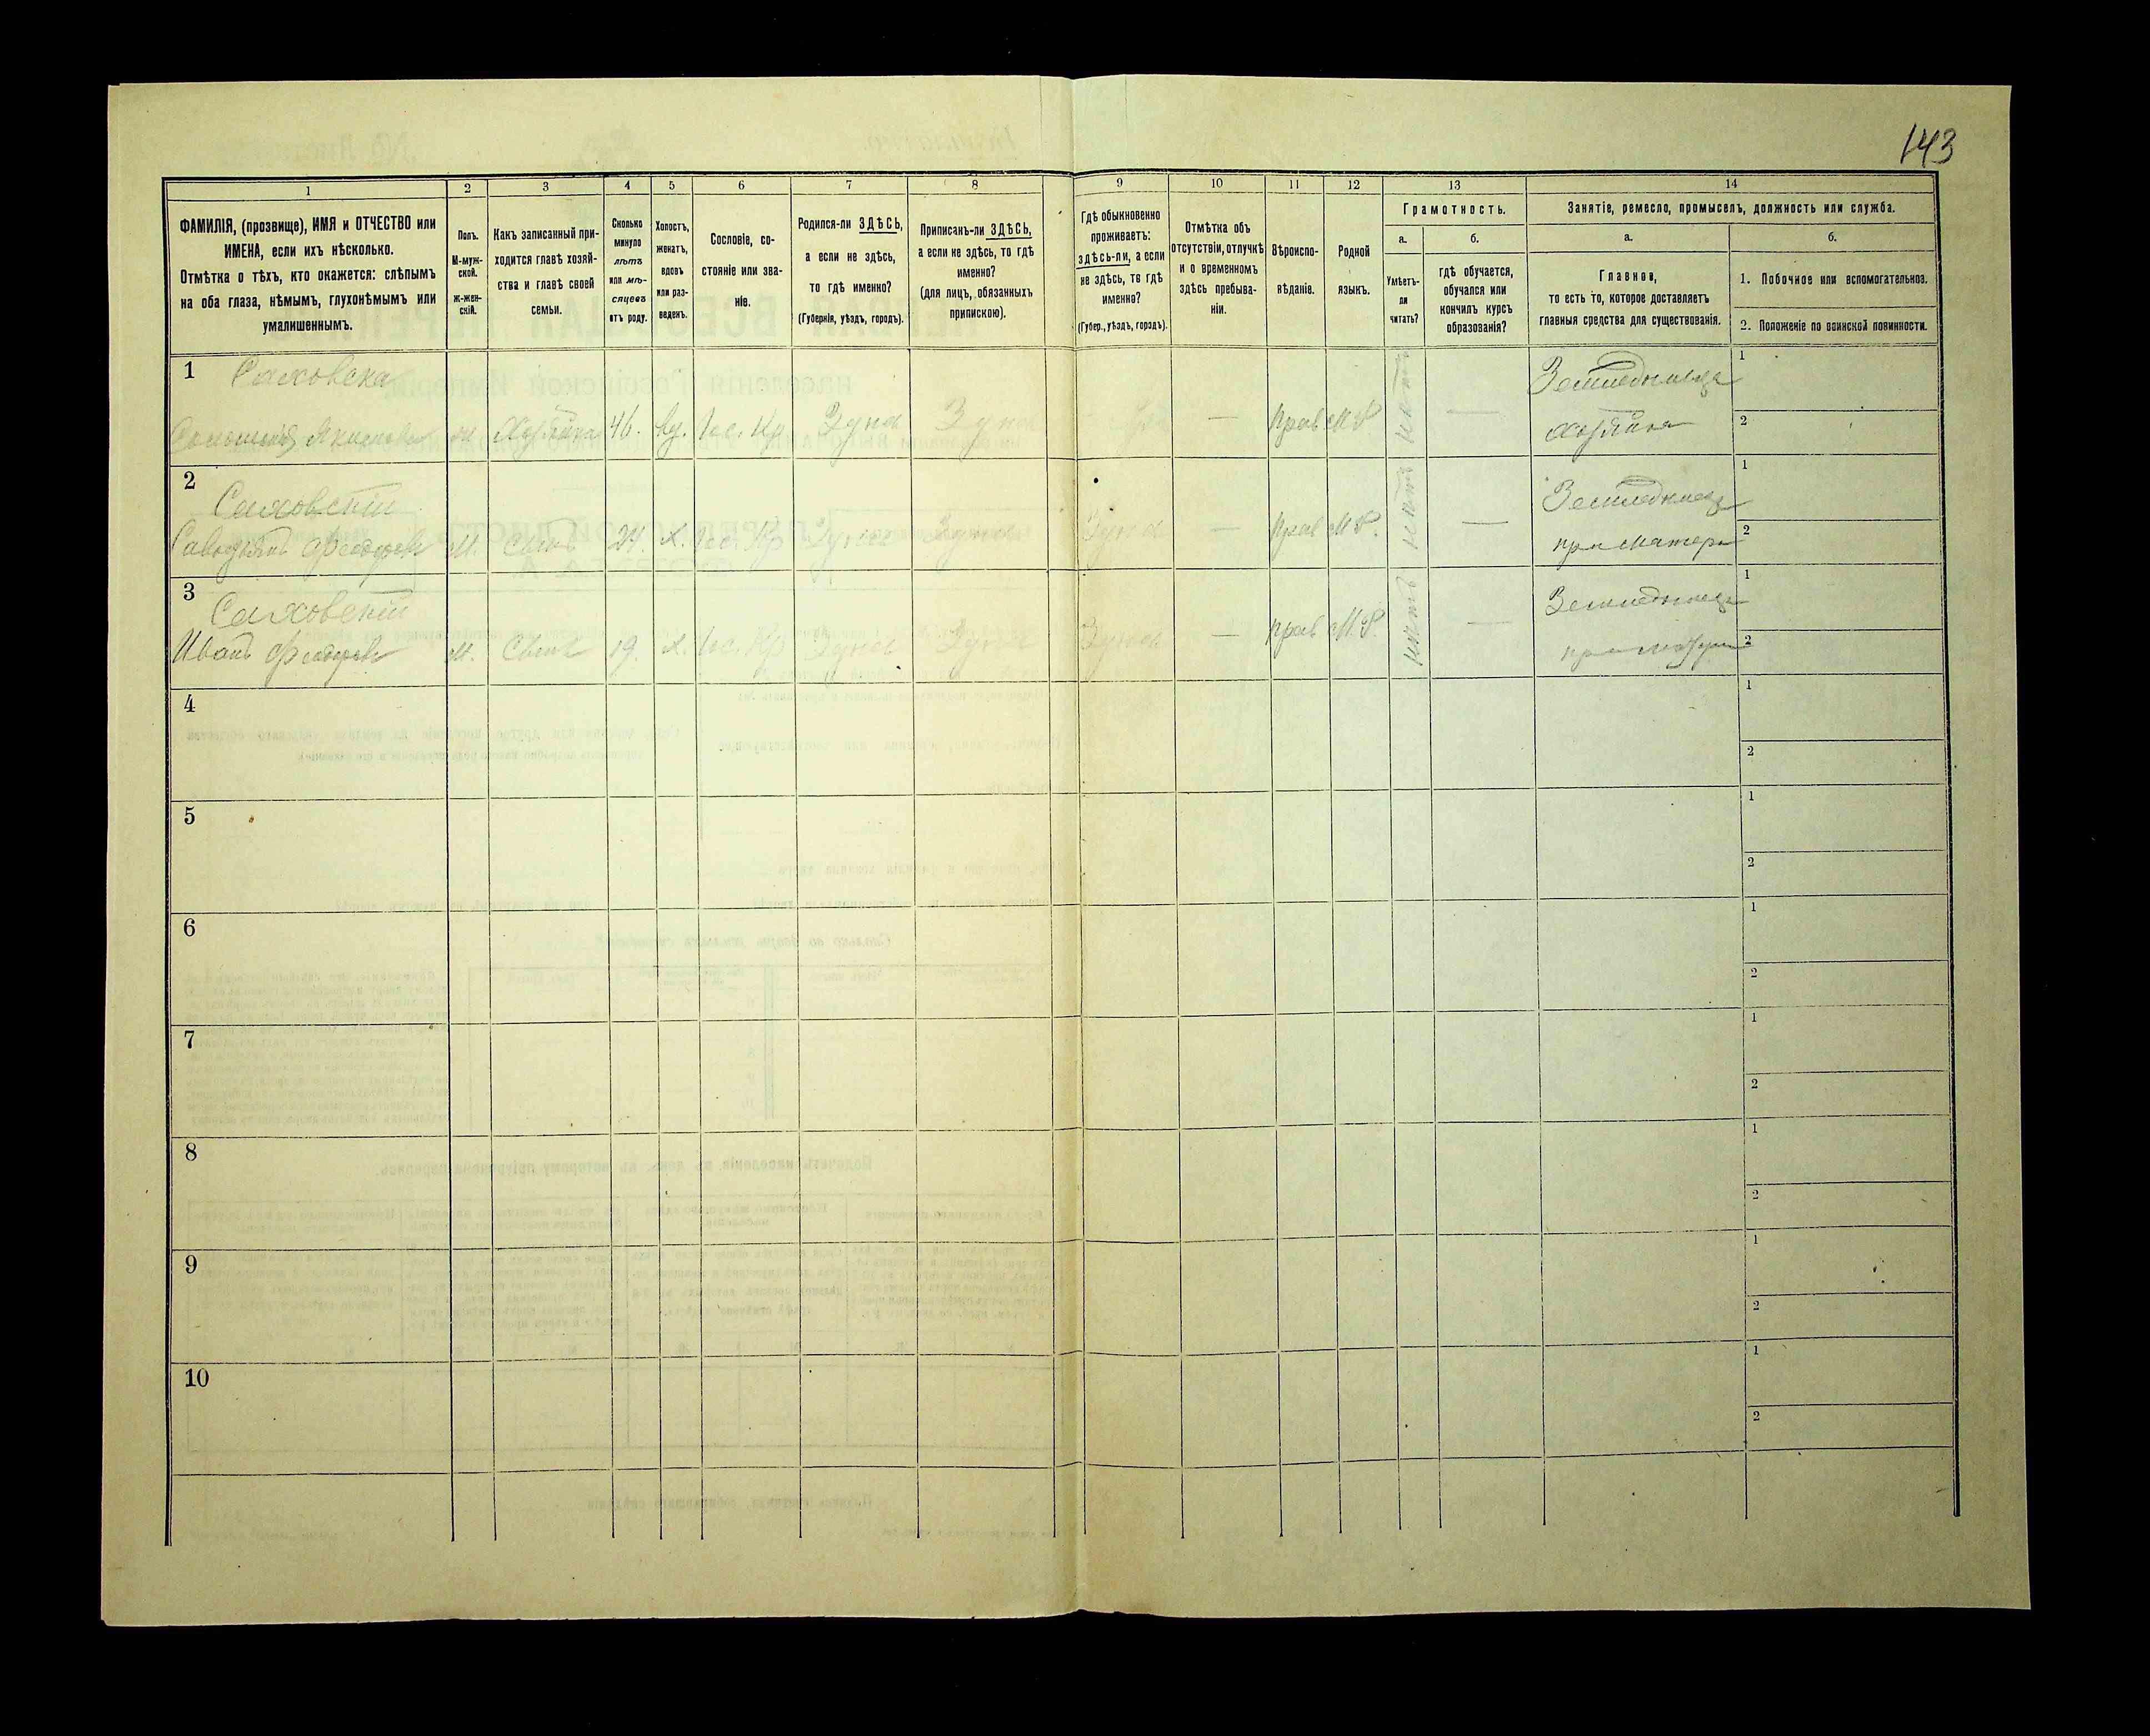 143
1 2 3 4 5 6 7 8 9 10 11 12 13 14
ФАМИЛІЯ, (прозвище), ИМЯ и ОТЧЕСТВО или
ИМЕНА, если ихъ нѣсколько.
Отмѣтка о тѣхъ, кто окажется: слѣпымъ
на оба глаза, нѣмымъ, глухонѣмымъ или
умалишеннымъ.
Полъ.
М-муж-
ской.
ж-жен-
скій.
Какъ записанный при-
ходится главѣ хозяй-
ства и главѣ своей
семьи.
Сколько
минуло
лѣтъ
или мѣ-
сяцевъ
отъ роду.
Холостъ,
женатъ,
вдовъ
или раз-
веденъ.
Сословіе, со-
стояніе или зва-
ніе.
Родился-ли ЗДѢСЬ,
а если не здѣсь,
то гдѣ именно?
(Губернія, уѣздъ, городъ).
Приписанъ-ли ЗДѢСЬ,
а если не здѣсь, то гдѣ
именно?
(для лицъ, обязанныхъ
припискою).
Гдѣ обыкновенно
проживаетъ:
здѣсь-ли, а если
не здѣсь, то гдѣ
именно?
(Губер., уѣздъ, городъ).
Отмѣтка объ
отсутствіи, отлучкѣ
и о временномъ
здѣсь пребыва-
ніи.
Вѣроиспо-
вѣданіе.
Родной
языкъ.
Грамотность.
а.
Умѣетъ-
ли
читать?
б.
гдѣ обучается,
обучался или
кончилъ курсъ
образованія?
Занятіе, ремесло, промыселъ, должность или служба.
а.
Главное,
то есть то, которое доставляетъ
главныя средства для существованія.
б.
1. Побочное или вспомогательное.
2. Положеніе по воинской повинности.
1
Земледѣлецъ 1
хозяйка 46. вд. Кр — Прав М.Р. нѣтъ — хозяйка 2
2 Саховскій Земледѣлецъ 1
М. Сынъ 24. х. Кр — Прав М.Р. нѣтъ — при матери 2
3 Саховскій Земледѣлецъ 1
Иванъ М. Сынъ 19. х. Кр — Прав М.Р. нѣтъ — 2
4 1
2
5 1
2
6 1
2
7 1
2
8 1
2
9 1
2
10 1
2